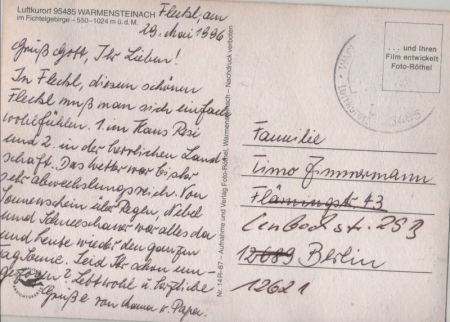 Luftkurort 95485 WARMENSTEINACH
im Fichtelgebirge – 550-1024 m ü.d.M.
Fleckl, am
29. Mai 1996
Grüß Gott, Ihr Lieben!
In Fleckl, diesem schönen
Fleckl muß man sich einfach
wohlfühlen. 1. im Haus Resi
und 2. in der herrlichen Land-
schaft. Das Wetter war bisher
sehr abwechslungsreich. Von
Sonnenschein über Regen, Nebel
und Schneeschauer war alles da
und heute wieder den ganzen
Tag Sonne. Seid Ihr schon um-
gezogen? Lebt wohl u. herzliche
Grüße von Mama u. Papa.
Nr. 14 Fl-67 – Aufnahme und Verlag Foto-Röthel, Warmensteinach – Nachdruck verboten
... und Ihren
Film entwickelt
Foto-Röthel
Familie
Timo Zimmermann
Flämingstr. 43
Lenbachstr. 29
12689 Berlin
12621